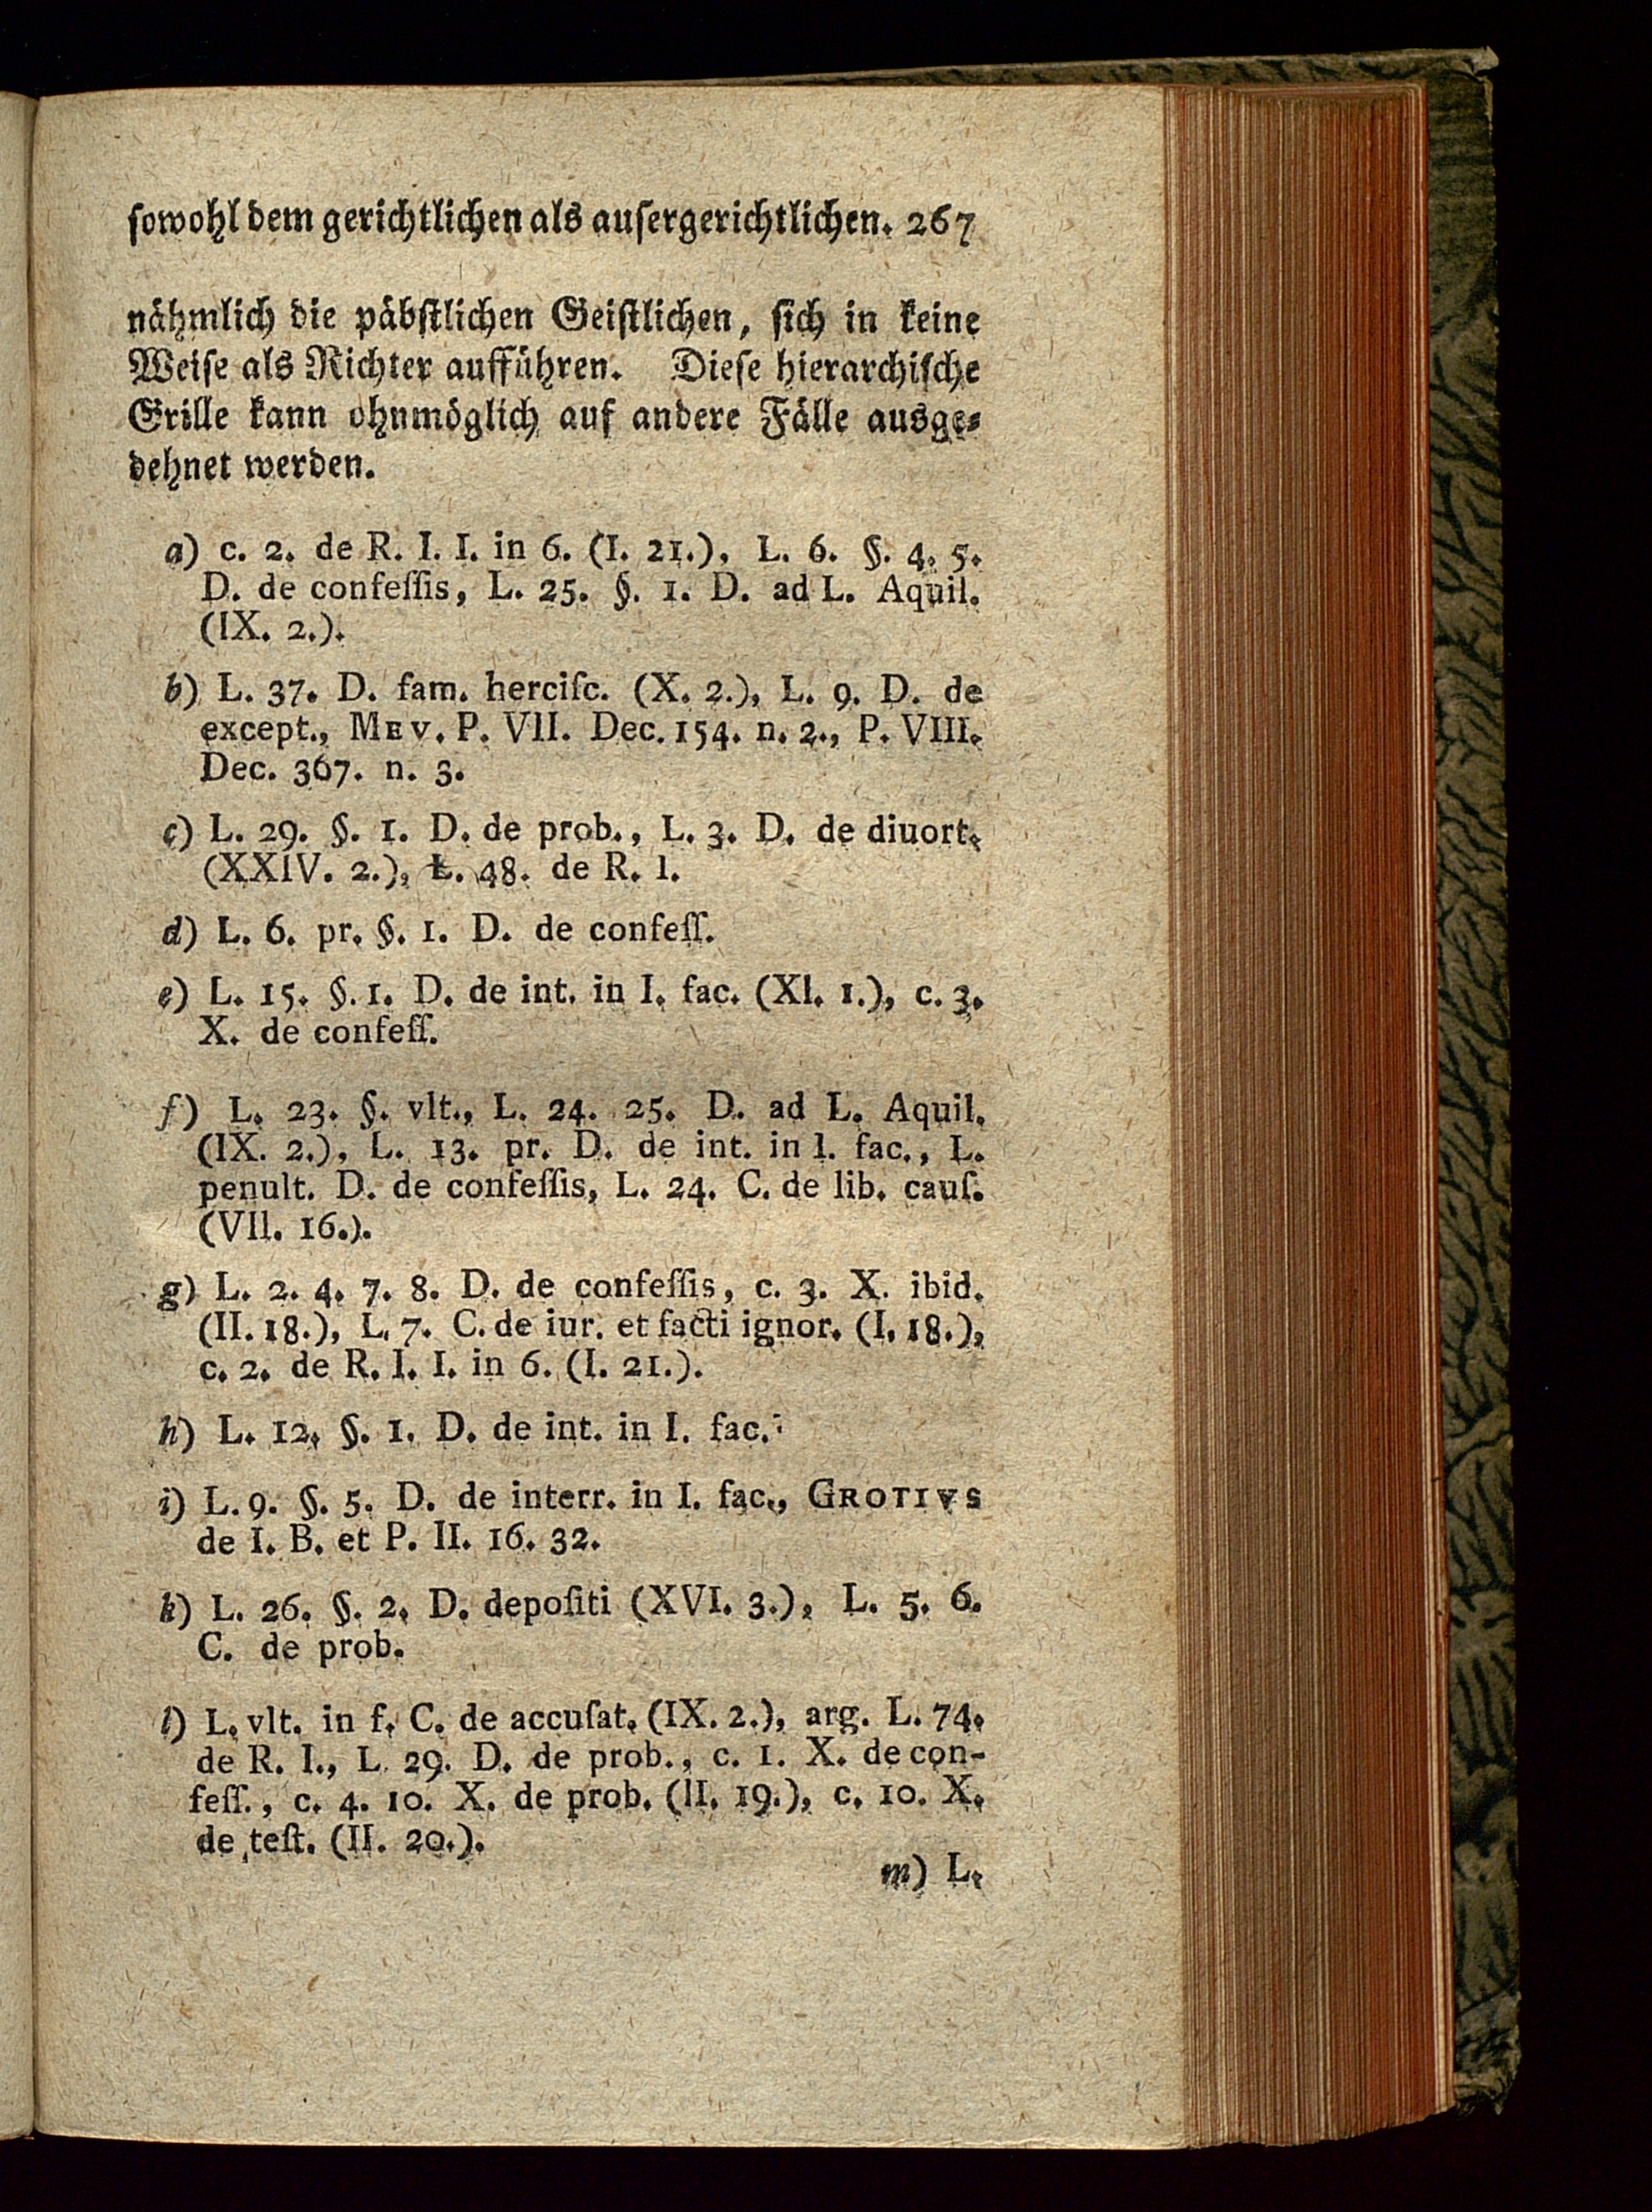 ſowohl dem gerichtlichen als auſergerichtlichen. 267
nähmlich die päbſtlichen Geiſtlichen, ſich in keine
Weiſe als Richter aufführen. Dieſe hierarchiſche
Grille kann ohnmöglich auf andere Fälle ausge-
dehnet werden.
a) c. 2. de R. I. I. in 6. (I. 21.), L. 6. §. 4. 5.
D. de confeſſis, L. 25. §. 1. D. ad L. Aquil.
(IX. 2.).
b) L. 37. D. fam. herciſc. (X. 2.), L. 9. D. de
except., MEV. P. VII. Dec. 154. n. 2., P. VIII.
Dec. 367. n. 3.
c) L. 29. §. 1. D. de prob., L. 3. D. de diuort.
(XXIV. 2.), L. 48. de R. I.
d) L. 6. pr. §. 1. D. de confeſſ.
e) L. 15. §. 1. D. de int. in I. fac. (XI. 1.), c. 3.
X. de confeſſ.
f) L. 23. §. vlt., L. 24. 25. D. ad L. Aquil.
(IX. 2.), L. 13. pr. D. de int. in I. fac., L.
penult. D. de confeſſis, L. 24. C. de lib. cauſ.
(VII. 16.).
g) L. 2. 4. 7. 8. D. de confeſſis, c. 3. X. ibid.
(II. 18.), L. 7. C. de iur. et facti ignor. (I. 18.),
c. 2. de R. I. I. in 6. (I. 21.).
h) L. 12. §. 1. D. de int. in I. fac.
i) L. 9. §. 5. D. de interr. in I. fac., GROTIVS
de I. B. et P. II. 16. 32.
k) L. 26. §. 2. D. depoſiti (XVI. 3.), L. 5. 6.
C. de prob.
l) L. vlt. in f. C. de accuſat. (IX. 2.), arg. L. 74.
de R. I., L. 29. D. de prob., c. 1. X. de con-
feſſ., c. 4. 10. X. de prob. (II. 19.), c. 10. X.
de teſt. (II. 20.).
m) L.